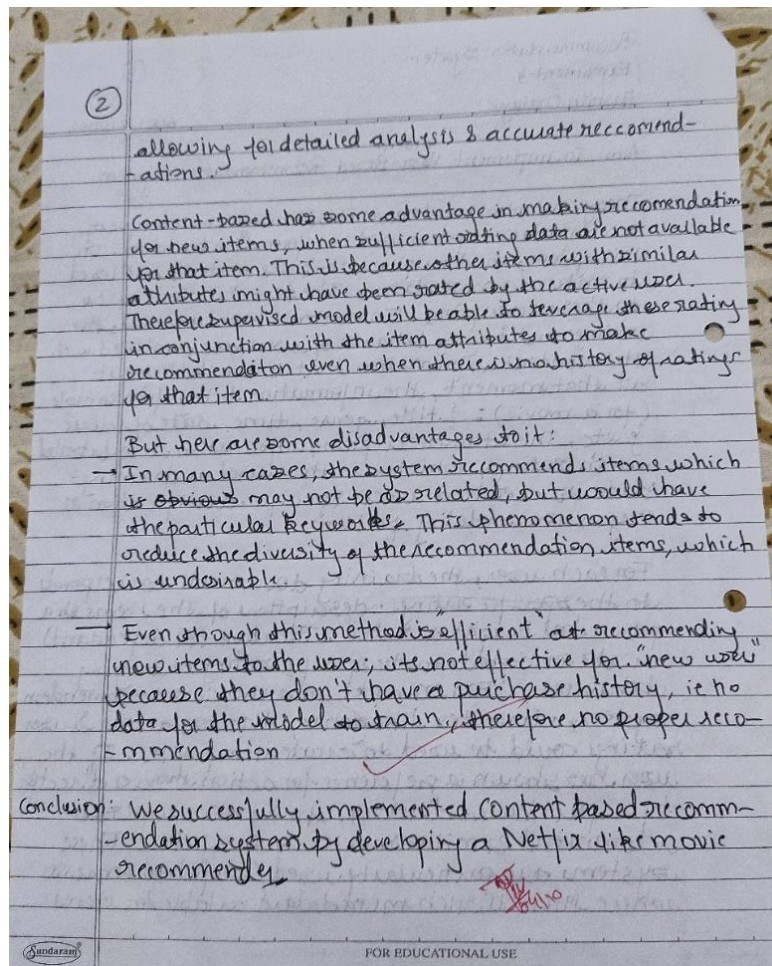 2
allowing for detailed analysis & accurate reccomend-
-ations.
Content-based has some advantage in making reccomendation
for new items, when sufficient rating data are not available
for that item. This is because other items with similar
attributes might have been rated by the active user.
Therefore supervised model will be able to leverage these rating
in conjunction with the item attributes to make
recommendaiton even when there is no history of ratings
for that item.
But here are some disadvantages to it:
→ In many cases, the system reccommends items which
is obvious may not be as related, but would have
the particular keywords. This phenomenon tends to
reduce the diversity of the recommendation items, which
is undesirable.
→ Even though this method is "efficient" at recommending
new items to the user; its not effective for "new user"
because they don't have a purchase history, ie no
data for the model to train, therefore no proper reco-
-mmendation
Conclusion: We successfully implemented Content based recomm-
-endation system by developing a Netflix like movie
recommender
Sundaram
FOR EDUCATIONAL USE